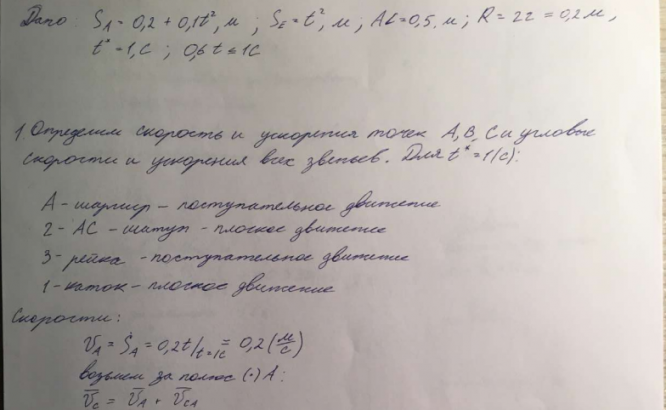 Дано: S_A = 0,2 + 0,1t², м ; S_E = t², м ; AC = 0,5, м ; R = 2r = 0,2 м,
t* = 1, с ; 0,6 t ≤ 1с
1. Определим скорость и ускорения точек A, B, C и угловые
скорости и ускорения всех звеньев. Для t* = 1(с):
А - шарнир - поступательное движение
2 - АС - шатун - плоское движение
3 - рейка - поступательное движение
1 - каток - плоское движение
Скорости:
V_A = Ṡ_A = 0,2t/t=1с = 0,2 (м/с)
возьмем за полюс (·) А:
V̄_C = V̄_A + V̄_CA